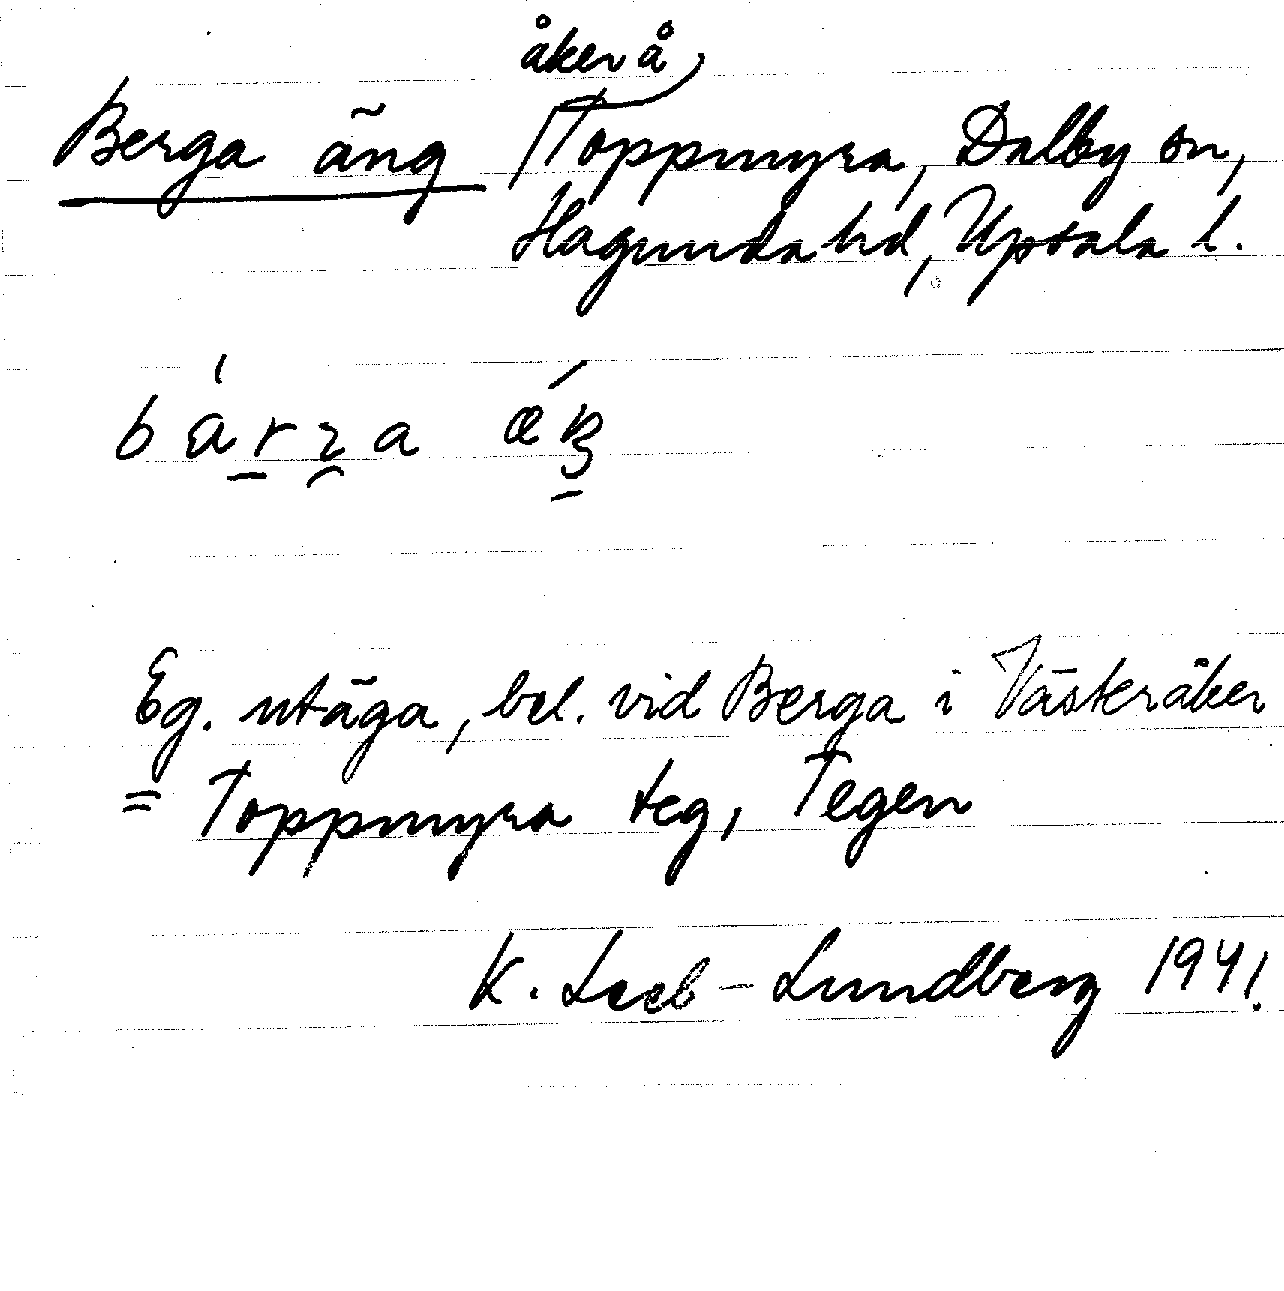 åker å
Berga äng Toppmyra, Dalby sn,
Hagunda hd, Upsala l.
Eg. utäga, bel. vid Berga i Västeråker
= Toppmyra teg, Tegen
K. Leeb-Lundberg 1941.